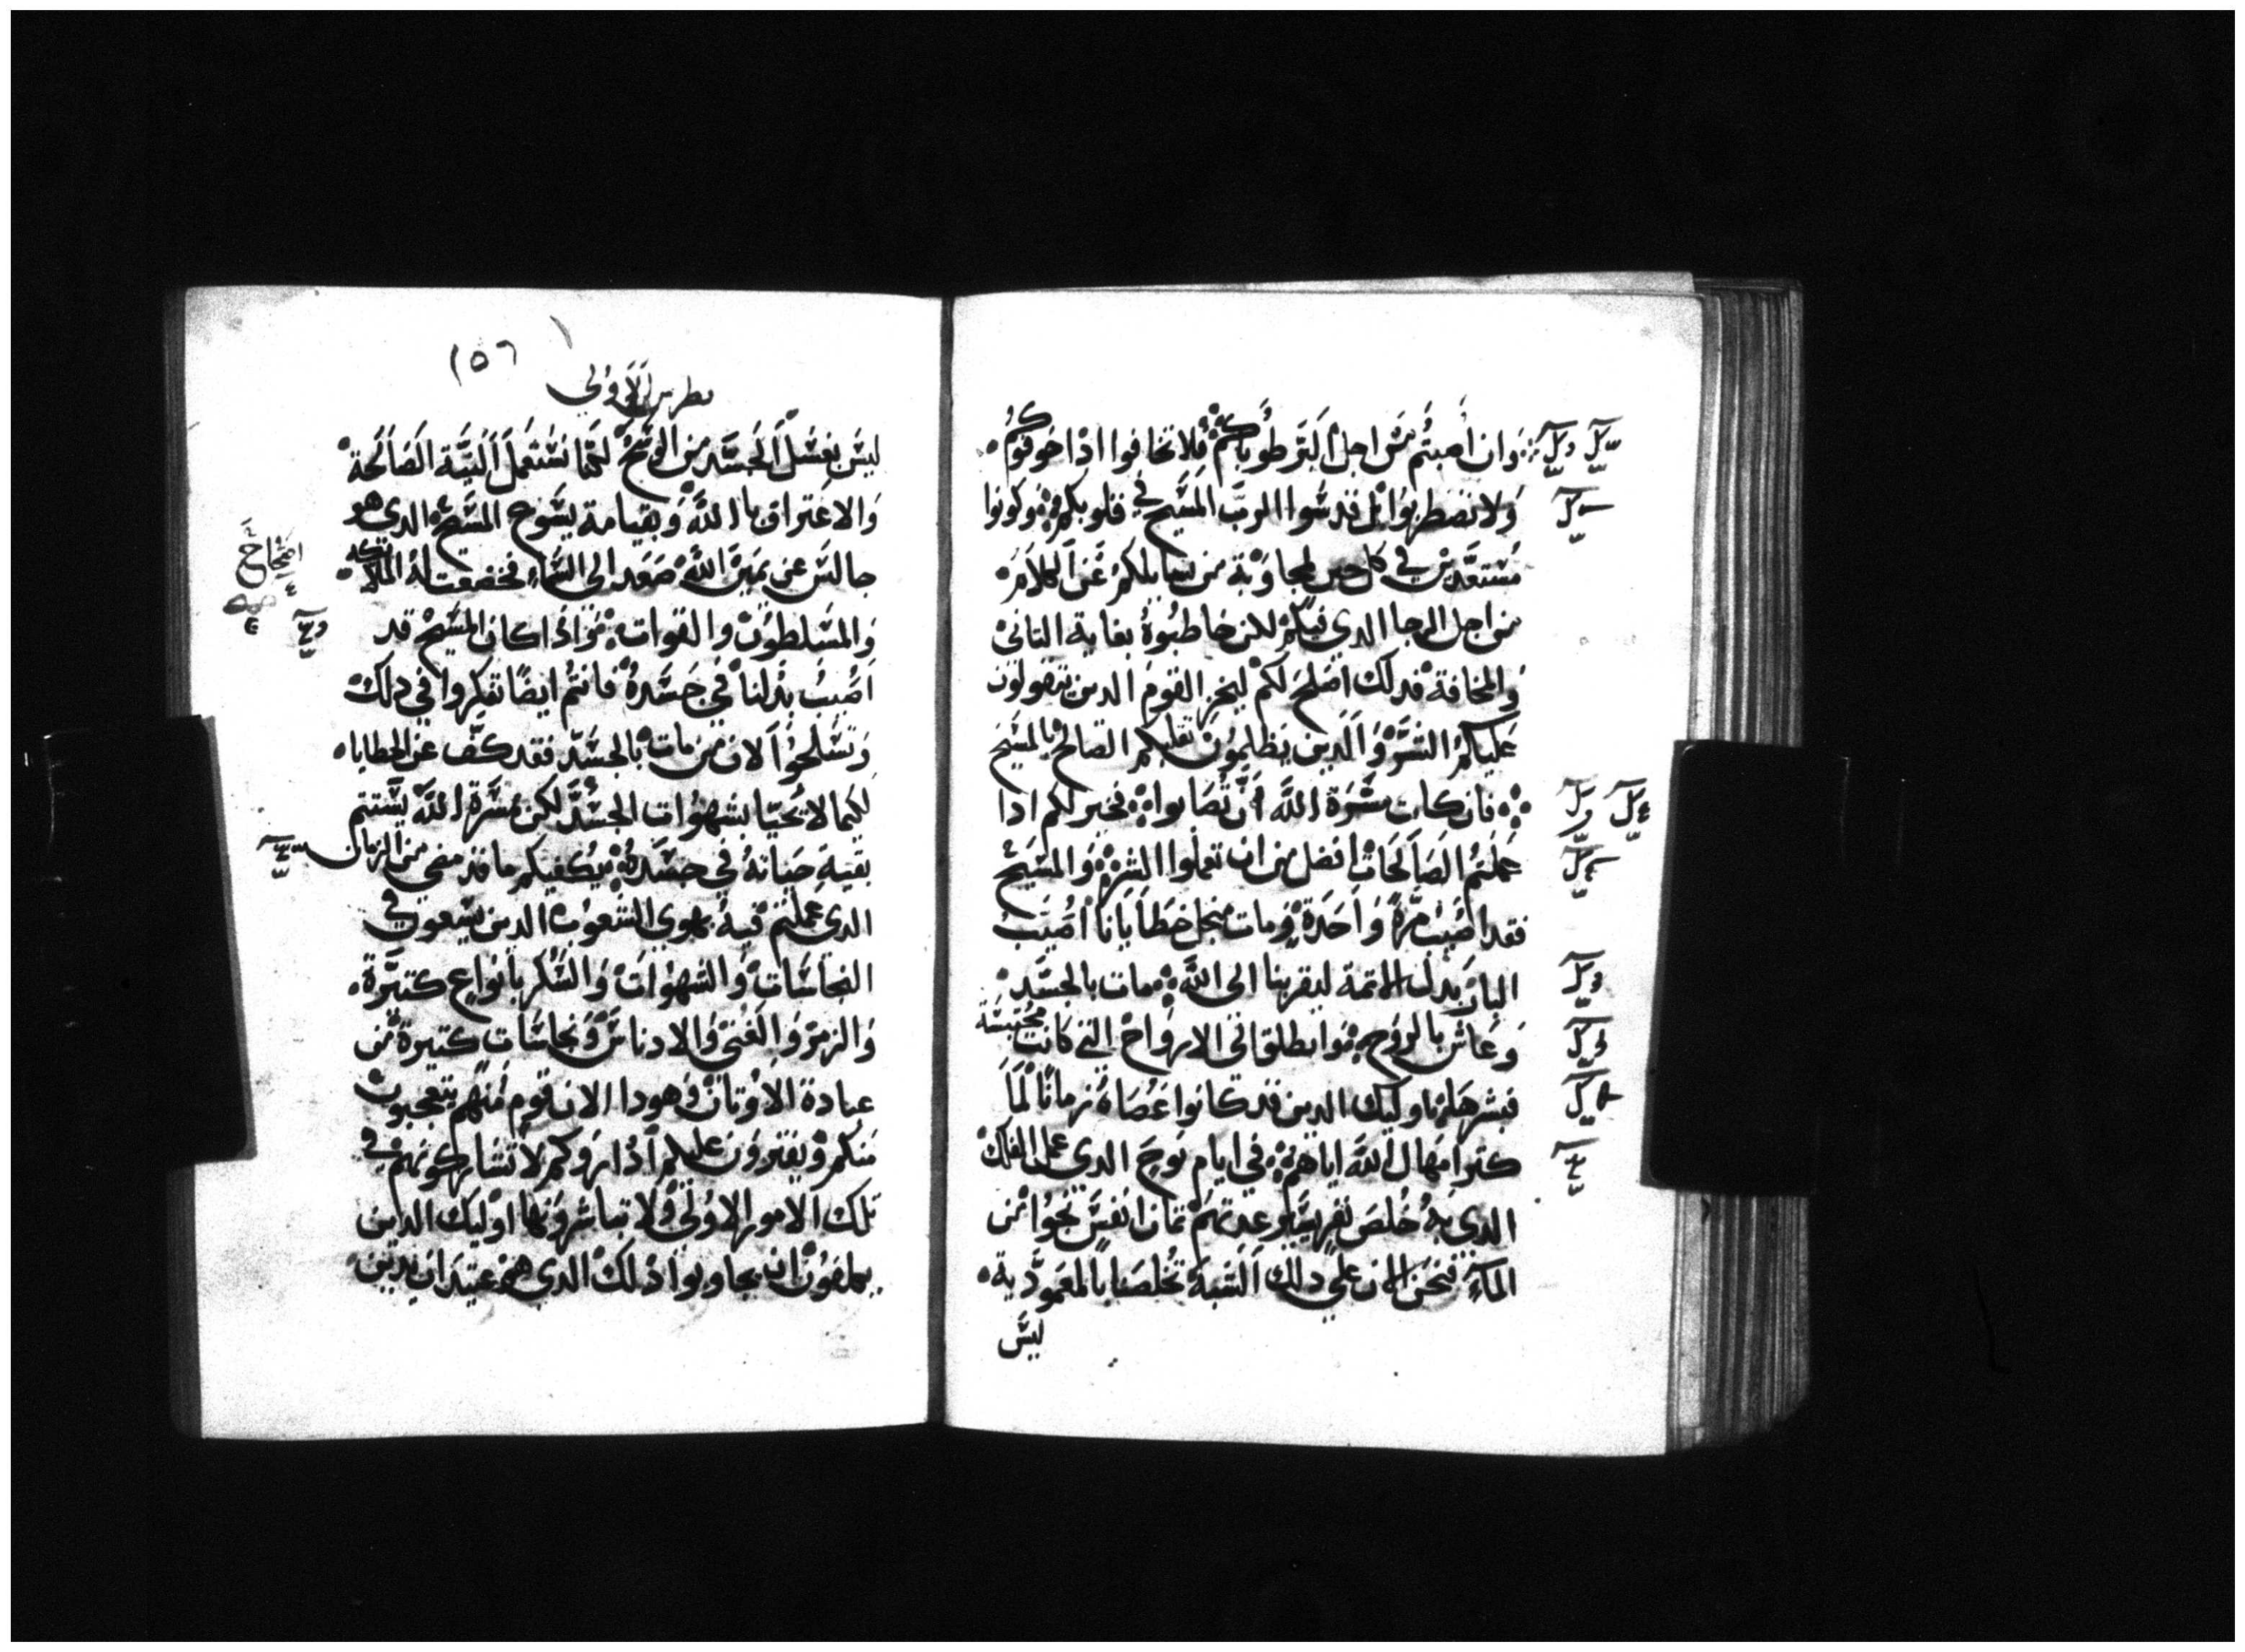 وان أصبتم من اجل البر طوباكم فلا تخافوا اذا خوفوكم
ولا تضطربوا بل قدسوا الرب المسيح في قلوبكم وكونوا
مستعدين في كل حين لمجاوبة من يسايلكم عن الكلام
من اجل الرجا الذي فيكم لكن خاطبوه بغاية التاني
والمخافة فذلك اصلح لكم ليخز القوم الدين يتقولون
عليكم الشر والدين يظلمون تقلبكم الصالح بالمسيح
فان كانت مسرة الله أن تصابوا فخير لكم ادا
عملتم الصالحات افضل من ان تعملوا الشر والمسيح
فقد اصيب مرة واحدة ومات من اجل خطايانا اصيب
البار بدل الاتمة ليقربنا الى الله مات بالجسد
وعاش بالروح وانطلق الى الارواح التي كانت محتبسة
فبشرها اوليك الدين قد كانوا عصاة زمانا لما
كتر امهال الله اياهم في ايام نوح الدي عمل الفلك
الدي به خلص نفر يسير وعدتهم تمان انفس نجوا من
المآء فنحن الان على دلك الشبه تخلصنا بالمعمودية
ليس
١٥٦
بطرس الاولى
ليس بغسل الجسد من الوسخ لكنما نستعمل النية الصالحة
والاعتراف بالله وبقيامة يسوع المسيح الدي هو
جالس عن يمين الله صعد الى السماء فخضعت له الملايكه
والمسلطون والقوات واذا كان المسيح قد
اصيب بدلنا في جسده فانتم ايضا تفكروا في دلك
وتسلحوا لان من مات بالجسد فقد كف عن الخطايا
لكيما لا تحيا بشهوات الجسد لكن مسرة الله يستتم
بقية حياته في جسده يكفيكم ما قد مضى من الزمان
الدي عملتم فيه بهوى الشعوب الدين يسعون في
النجاسات والشهوات والسكر بانواع كتيرة
والزمر والغنى والادناس ونجاسات كتيرة من
عبادة الاوتان وهودا الان قوم منهم يتعجبون
منكم ويفترون عليكم اذا راوكم لا تشاركونهم في
تلك الامور الاولى ولا تباشرونها اوليك الدين
يملفون ان يجاوبوا ذلك الدي هو عتيد ان يدين
اصحاح